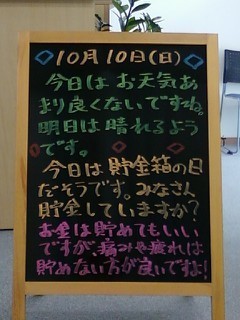 10月10日(日)
今日はお天気あ
まり良くないですね。
明日は晴れるよう
です。
今日は貯金箱の日
だそうです。みなさん
貯金していますか?
お金は貯めてもいい
ですが、痛みや疲れは
貯めない方が良いですよ!